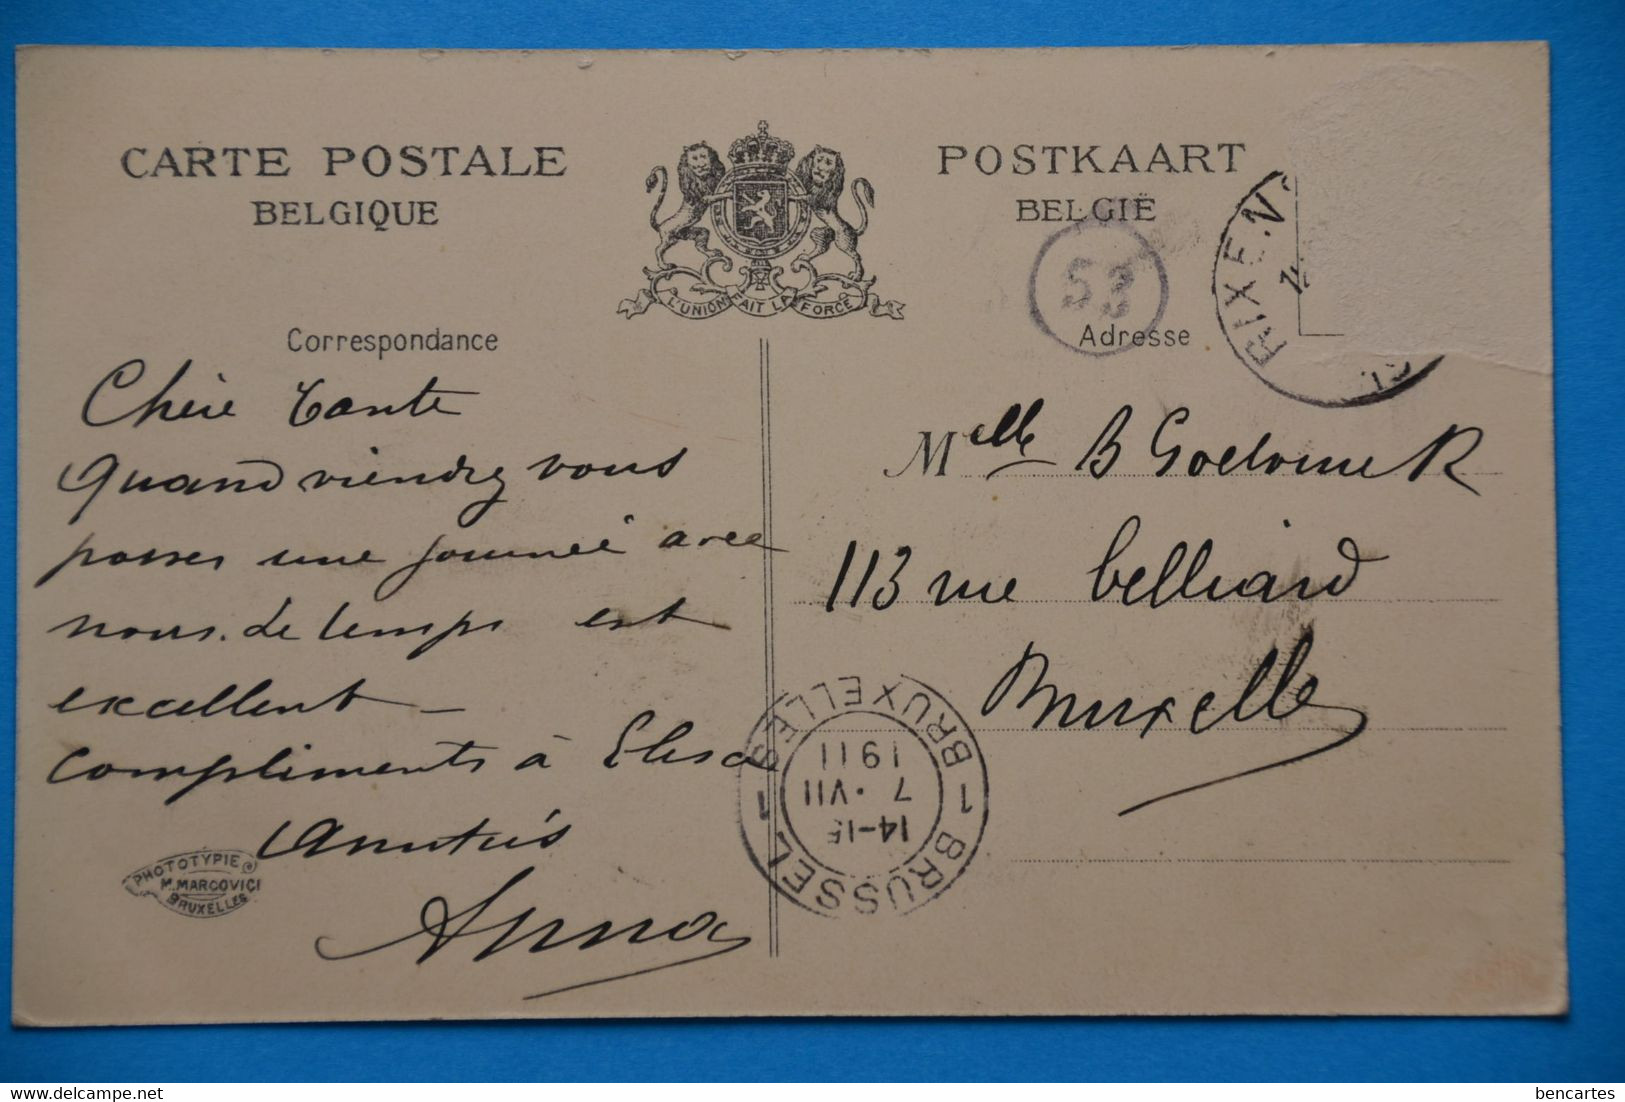 CARTE POSTALE
BELGIQUE
POSTKAART
BELGIË
L'UNION FAIT LA FORCE
53
RIXENS
Correspondance
Adresse
Chère tante
quand viendrez vous
passer une journée avec
nous. Le temps est
excellent –
compliments à Elisa
Amitiés
Anna
Melle B
113 rue belliard
Bruxelles
1 BRUXELLES 1 BRUSSEL
14-15
7 · VII
1911
PHOTOTYPIE
M. MARCOVICI
BRUXELLES
bencartes